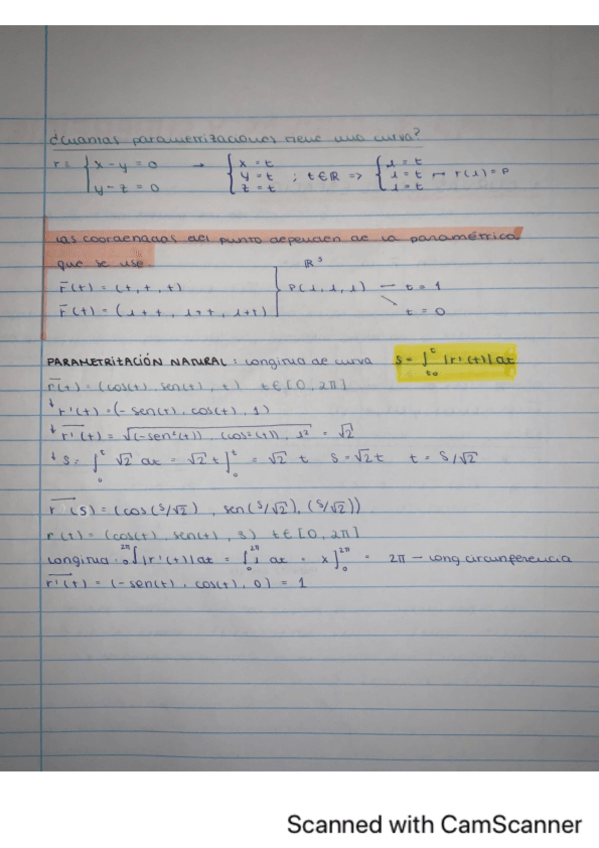 ¿Cuantas parametrizaciones tiene una curva?
r = { x - y = 0 → { x = t ; t ∈ ℝ => { 1 = t → r(1) = P
y - z = 0 y = t 1 = t
z = t 1 = t
Las coordenadas del punto dependen de la paramétrica
que se use. ℝ³
r̄(t) = (t, t, t) } P(1, 1, 1) — t = 1
r̄(t) = (1+t, 1+t, 1+t) ↘ t = 0
PARAMETRIZACIÓN NATURAL: longitud de curva S = ∫ₜ₀ᵗ |r'(t)| dt
r̄(t) = (cos(t), sen(t), t) t ∈ [0, 2π]
↓ r'(t) = (-sen(t), cos(t), 1)
↓ r̄'(t) = √((-sen²(t)), (cos²(t)), 1² = √2
↓ S = ∫₀ᵗ √2 dt = √2 t]₀ᵗ = √2 t S = √2 t t = S/√2
r̄(S) = (cos(S/√2), sen(S/√2), (S/√2))
r(t) = (cos(t), sen(t), 3) t ∈ [0, 2π]
Longitud: ₀²π∫ |r'(t)| dt = ∫₀²π 1 dt = x]₀²π = 2π — long circunferencia
r̄'(t) = (-sen(t), cos(t), 0) = 1
Scanned with CamScanner